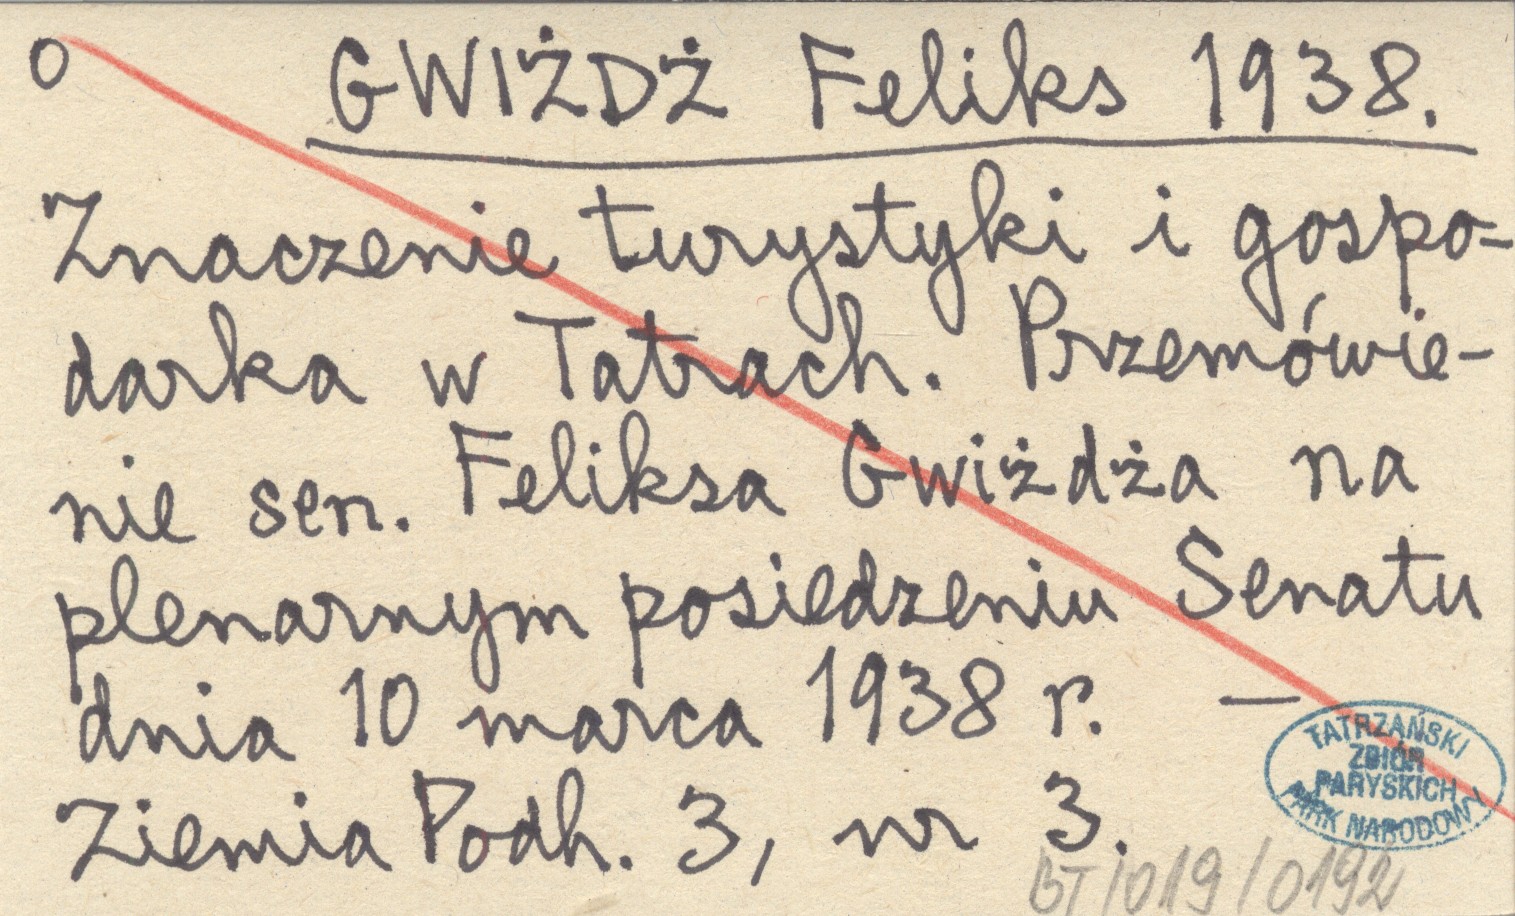 o GWIŻDŻ Feliks 1938.
Znaczenie turystyki i gospo-
darka w Tatrach. Przemówie-
nie sen. Feliksa Gwiżdża na
plenarnym posiedzeniu Senatu
dnia 10 marca 1938 r. —
Ziemia Podh. 3, nr 3.
TATRZAŃSKI
ZBIÓR
PARYSKICH
PARK NARODOWY
BT/019/0192